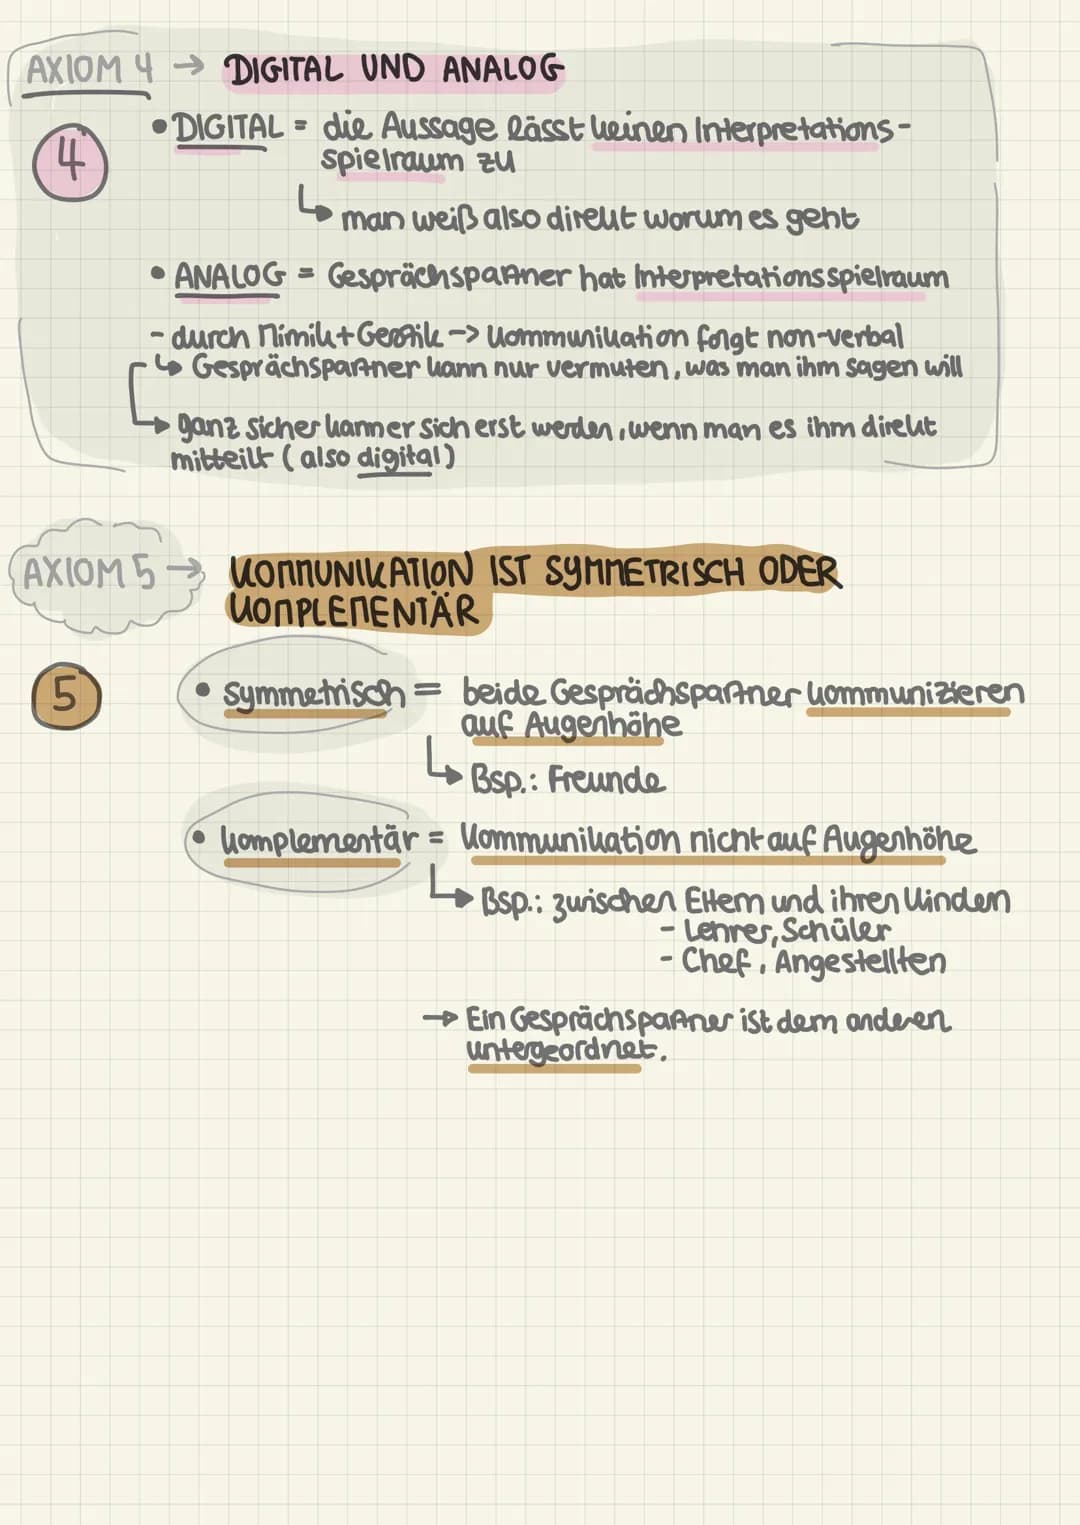 AXIOM 4 → DIGITAL UND ANALOG
4
• DIGITAL = die Aussage lässt keinen Interpretations-
spielraum zu
↳ man weiß also direkt worum es geht
• ANALOG = Gesprächspartner hat Interpretationsspielraum
- durch Mimik + Gestik -> Kommunikation folgt non-verbal
↳ Gesprächspartner kann nur vermuten, was man ihm sagen will
↳ ganz sicher kann er sich erst werden, wenn man es ihm direkt
mitteilt (also digital)
AXIOM 5 → KOMMUNIKATION IST SYMMETRISCH ODER
KOMPLEMENTÄR
5
• symmetrisch = beide Gesprächspartner kommunizieren
auf Augenhöhe
↳ Bsp.: Freunde
• komplementär = Kommunikation nicht auf Augenhöhe
↳ Bsp.: zwischen Eltern und ihren Kindern
- Lehrer, Schüler
- Chef, Angestellten
→ Ein Gesprächspartner ist dem anderen
untergeordnet.